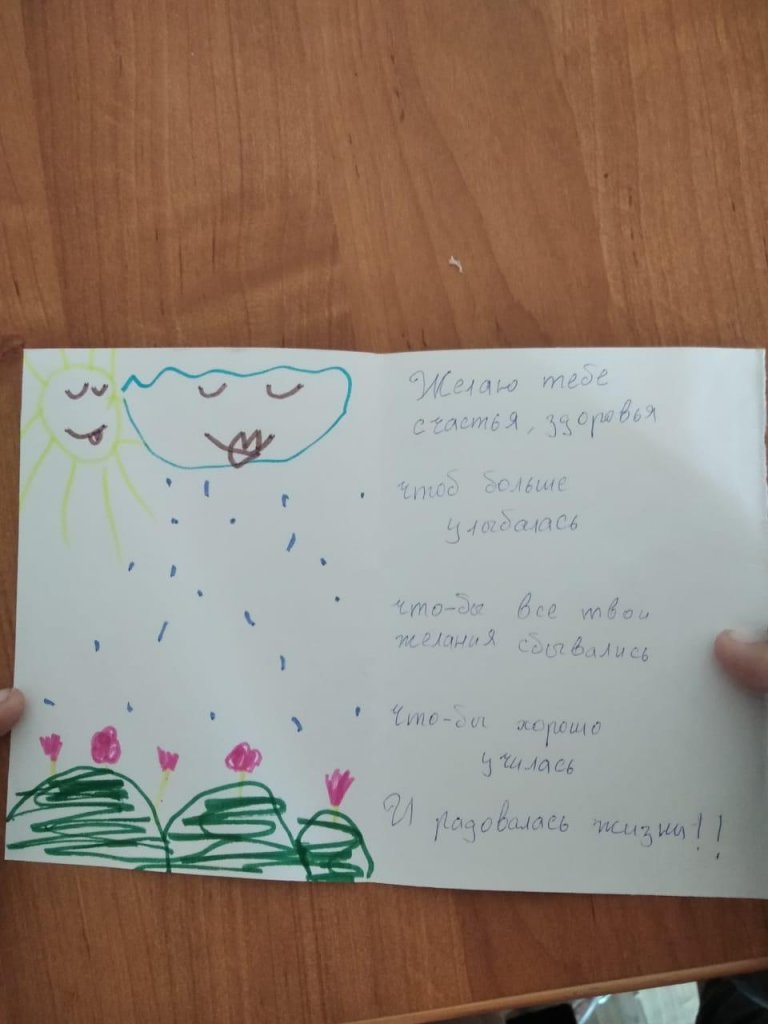 Желаю тебе
счастья, здоровья
чтоб больше
улыбалась
что-бы все твои
желания сбывались
что-бы хорошо
училась
И радовалась жизни!!